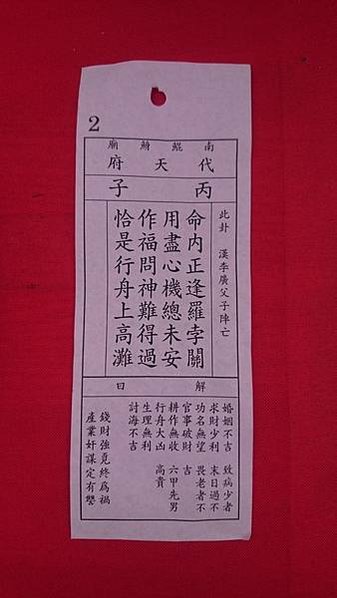 2
南鯤鯓廟
代天府
丙子
此卦　漢李廣父子陣亡
命內正逢羅孛關
用盡心機總未安
作福問神難得過
恰是行舟上高灘
解曰
婚姻不吉　致病少者
求財少利　末日過不
功名無望　畏老者不
官事破財　吉
耕作無收　六甲先男
行舟大凶　高貴
生理無利
討海不吉
錢財強覓終為禍
產業奸謀定有讐